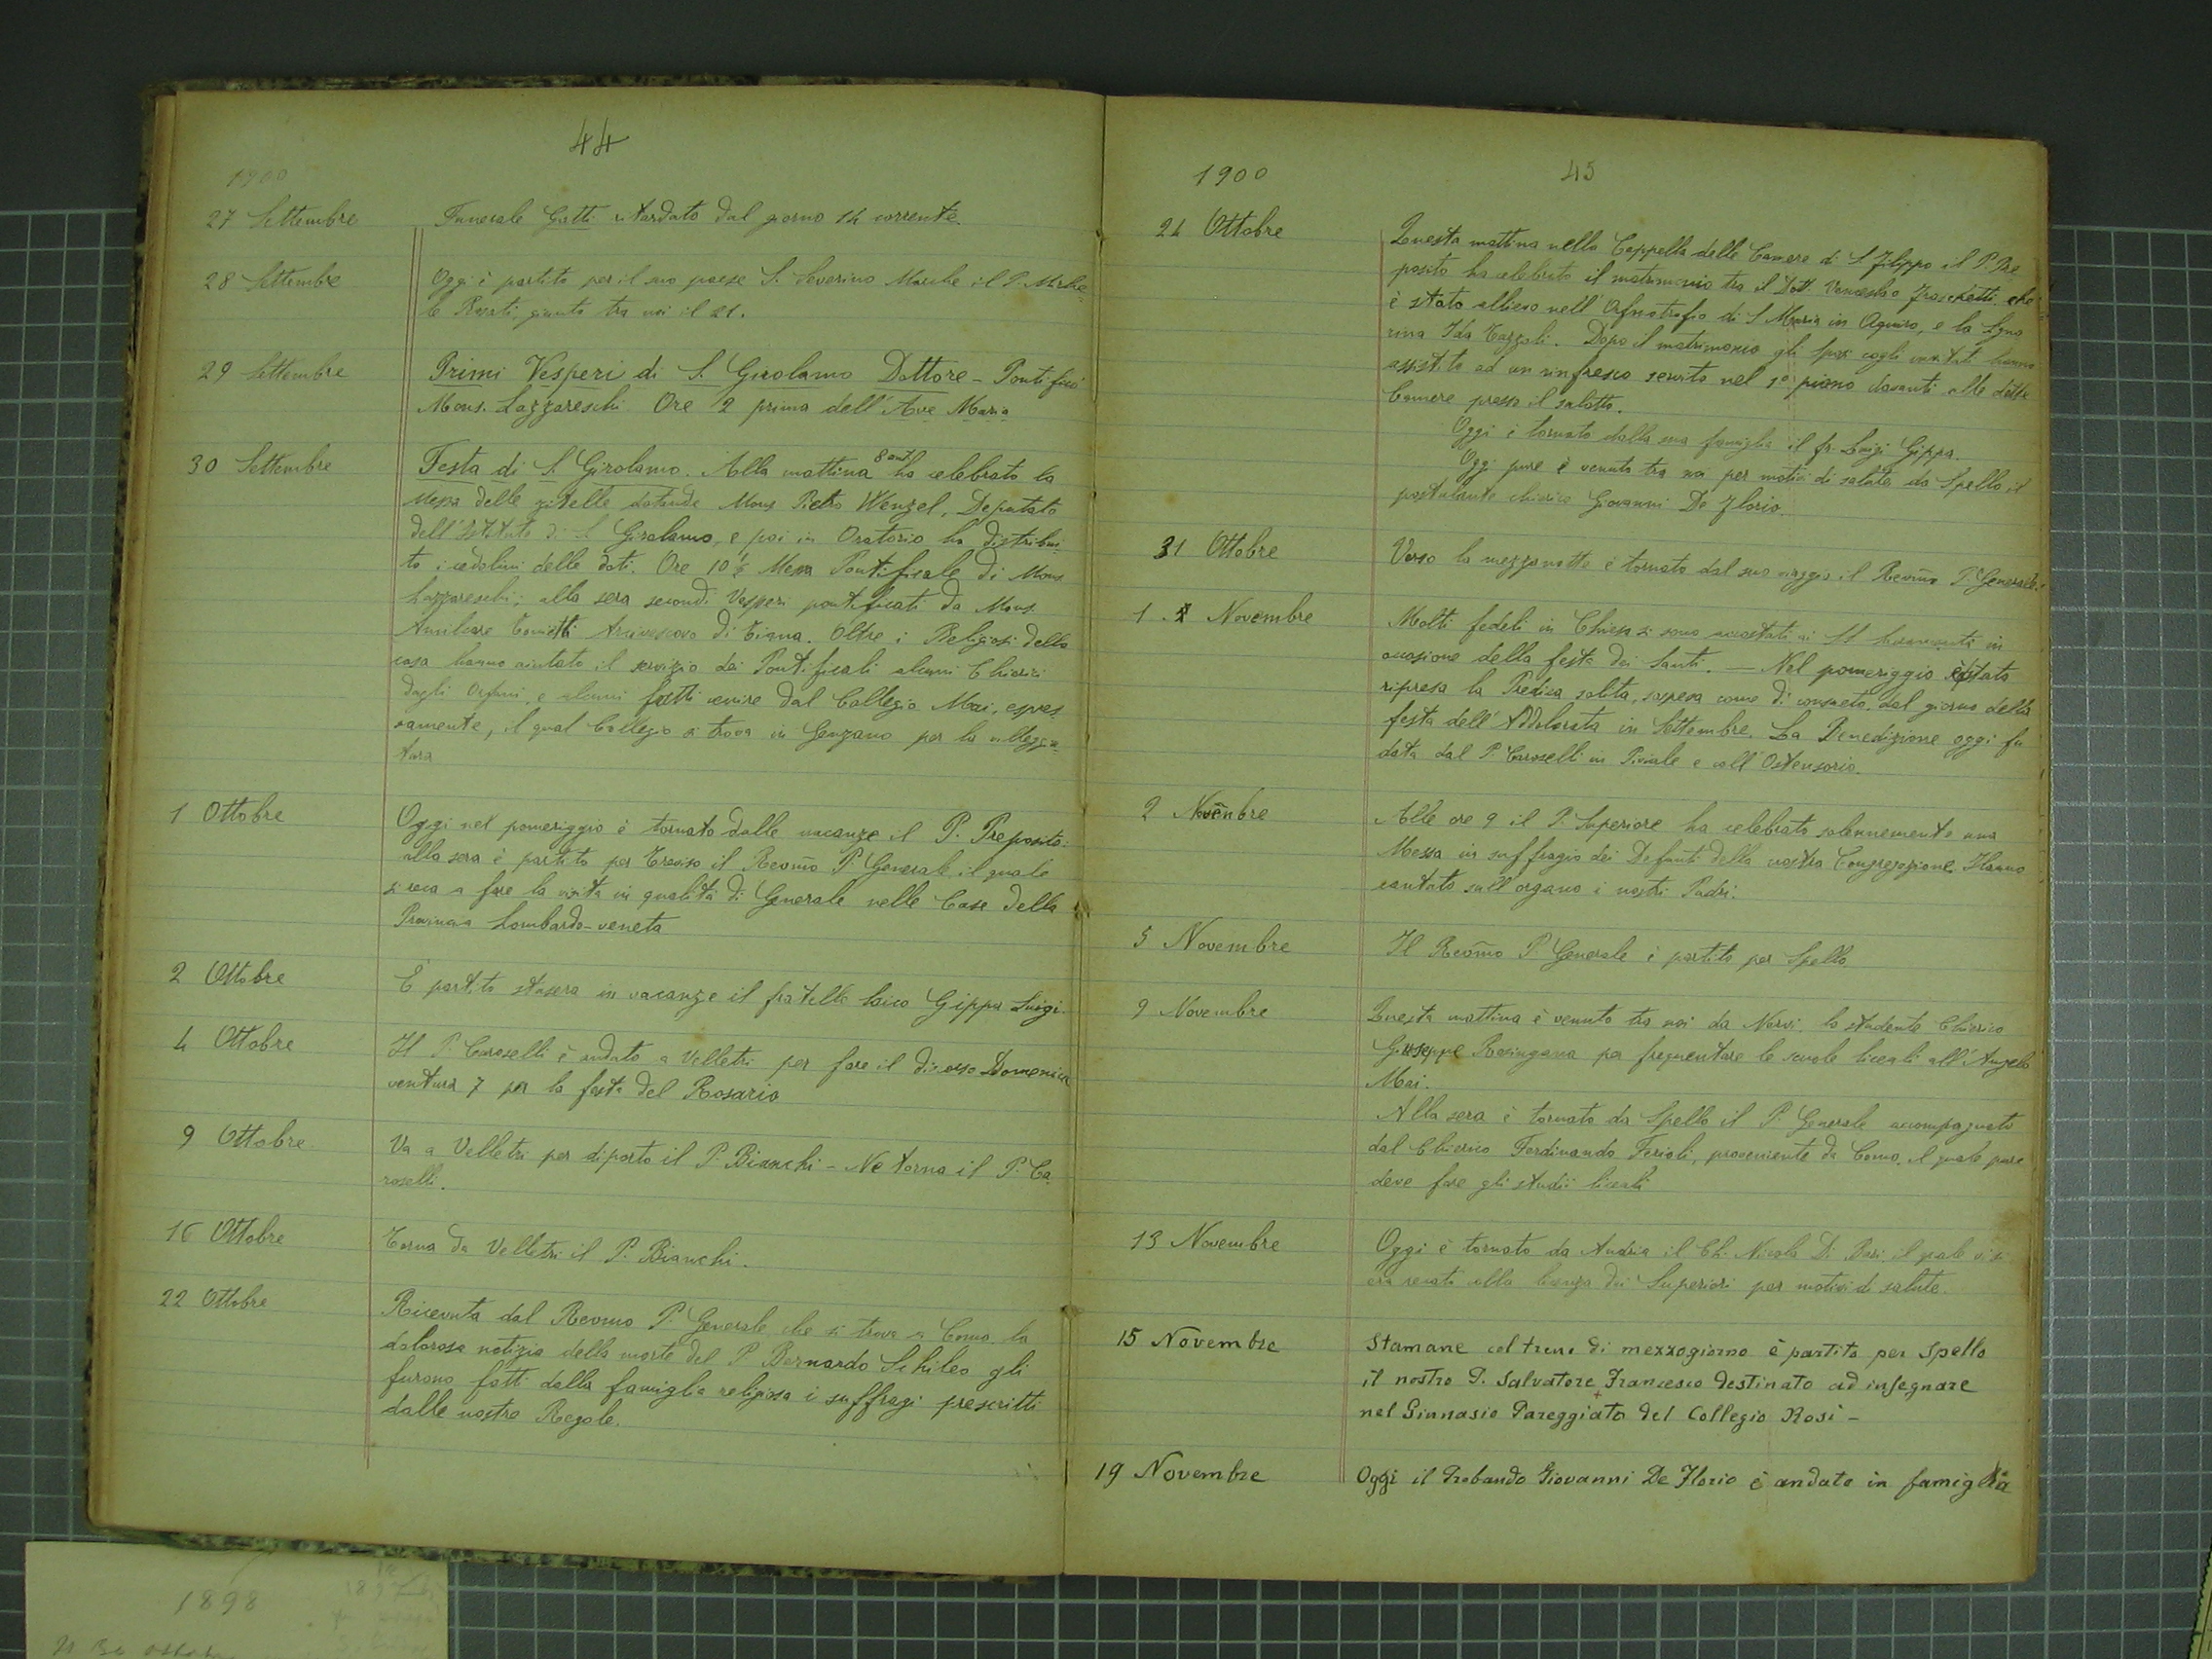 44
1900
27 Settembre Funerale Gatti ritardato dal giorno 14 corrente.
28 Settembre Oggi è partito per il suo paese S. Severino Marche il P. Miche-
le Rosati, giunto tra noi il 21.
29 Settembre Primi Vesperi di S. Girolamo Dottore - Pontificò
Mons. Lazzareschi Ore 2 prima dell'Ave Maria
30 Settembre Festa di S. Girolamo. Alla mattina 8 ant. ha celebrato la
Messa delle zitelle dotande Mons Pietro Wenzel, Deputato
dell'Istituto di S Girolamo, e poi in Oratorio ha distribui-
to i cedolini delle doti. Ore 10 ½ Messa Pontificale di Mons
Lazzareschi; alla sera secondi Vesperi pontificati da Mons.
Amilcare Tonietti Arcivescovo di Tiana. Oltre i Religiosi della
casa hanno aiutato il servizio dei Pontificali alcuni Chierici
degli Orfani, e alcuni fatti venire dal Collegio Mai, espres-
samente, il qual Collegio si trova in Genzano per la villeggia-
tura
1 Ottobre Oggi nel pomeriggio è tornato dalle vacanze il P. Preposito:
alla sera è partito per Treviso il Revm̃o P. Generale, il quale
si reca a fare la visita in qualità di Generale nelle Case della
Provincia Lombardo-veneta
2 Ottobre È partito stasera in vacanze il fratello laico Gippa Luigi.
4 Ottobre Il P. Caroselli è andato a Velletri per fare il discorso Domenica
ventura 7 per la festa del Rosario
9 Ottobre Va a Velletri per diporto il P. Bianchi - Ne torna il P. Ca-
roselli.
16 Ottobre Torna da Velletri il P. Bianchi.
22 Ottobre Ricevuta dal Revmo P. Generale che si trova a Como la
dolorosa notizia della morte del P Bernardo Schileo gli
furono fatti dalla famiglia religiosa i suffragi prescritti
dalle nostre Regole.
1900
45
24 Ottobre Questa mattina nella Cappella delle Camere di S Filippo il P. Pre
posito ha celebrato il matrimonio tra il Dott. Venceslao Fraschetti che
è stato allievo nell'Orfanotrofio di S Maria in Aquiro, e la Signo
rina Ida Cazzoli. Dopo il matrimonio gli sposi cogli invitati hanno
assistito ad un rinfresco servito nel 1º piano davanti alle dette
Camere presso il salotto.
Oggi è tornato dalla sua famiglia il fr. Luigi Gippa.
Oggi pure è venuto tra noi per motivi di salute da Spello il
postulante chierico Giovanni De Florio.
31 Ottobre Verso la mezzanotte è tornato dal suo viaggio il Revm̃o P. Generale.
1 Novembre Molti fedeli in Chiesa si sono accostati ai SS. Sacramenti in
occasione della festa dei Santi. — Nel pomeriggio è stata
ripresa la Predica solita, sospesa come di consueto dal giorno della
festa dell'Addolorata in Settembre. La Benedizione oggi fu
data dal P Caroselli in Piviale e coll'Ostensorio.
2 Novẽbre Alle ore 9 il P. Superiore ha celebrato solennemente una
Messa in suffragio dei Defunti della nostra Congregazione Hanno
cantato sull'organo i nostri Padri.
5 Novembre Il Revm̃o P. Generale è partito per Spello
9 Novembre Questa mattina è venuto tra noi da Nervi lo studente Chierico
Giuseppe Rasingana per frequentare le scuole liceali all'Angelo
Mai.
Alla sera è tornato da Spello il P. Generale accompagnato
dal Chierico Ferdinando Ferioli, proveniente da Como, il quale pure
deve fare gli studii liceali
13 Novembre Oggi è tornato da Andria il Ch. Nicola Di Bari il quale vi si
era recato colla licenza dei Superiori per motivi di salute.
15 Novembre Stamane col treno di mezzogiorno è partito per Spello
il nostro P. Salvatore Francesco destinato ad insegnare
nel Ginnasio Pareggiato del Collegio Rosi -
19 Novembre Oggi il Probando Giovanni De Florio è andato in famiglia
1898